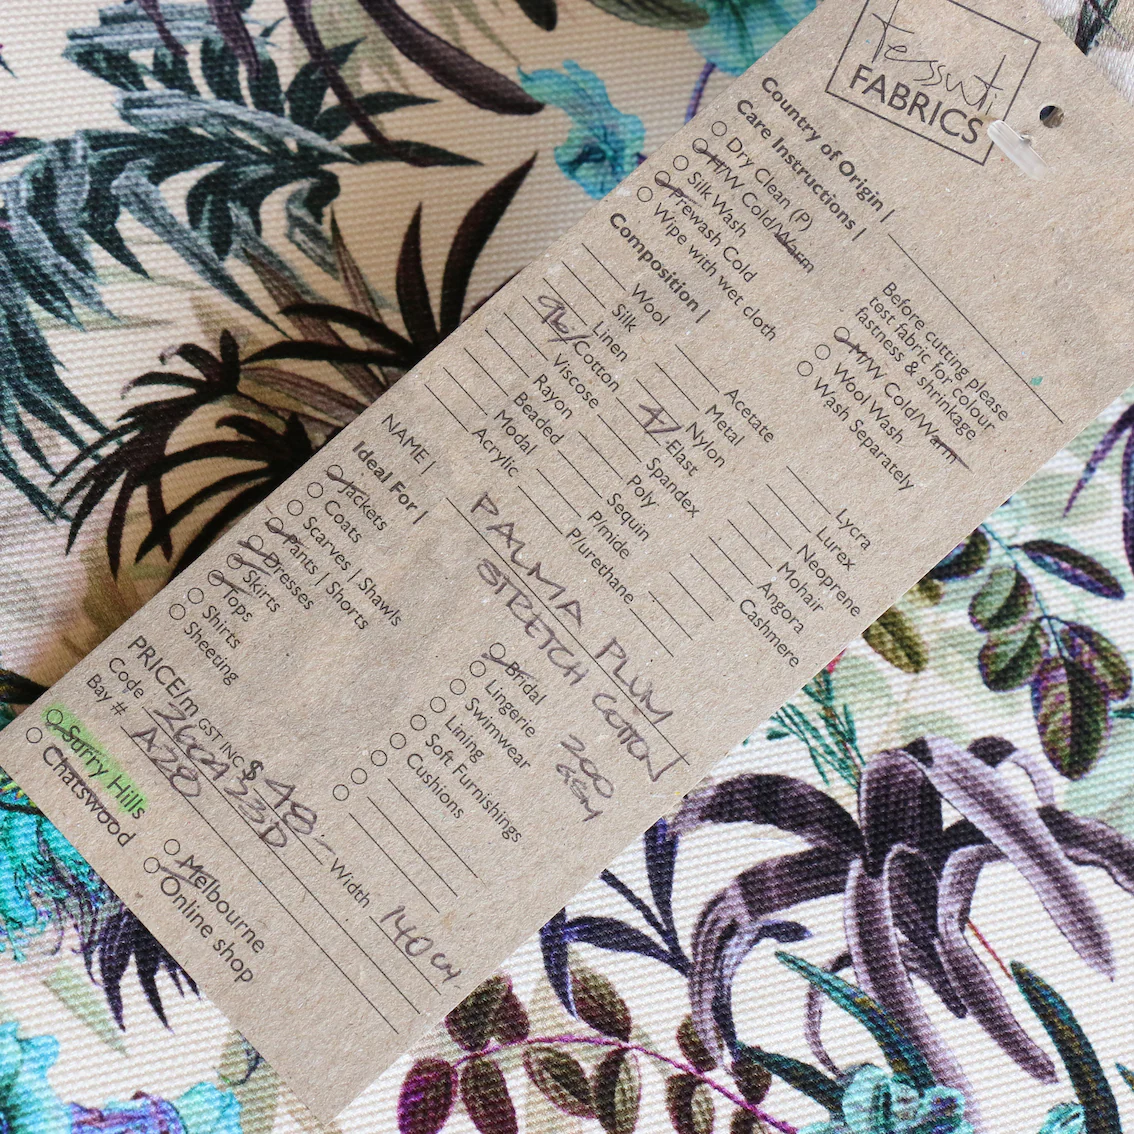 Tessuti
FABRICS
Country of Origin |
Care Instructions |
Dry Clean (P)
M/W Cold/Warm
Silk Wash
Prewash Cold
Wipe with wet cloth
Before cutting please
test fabric for colour
fastness & shrinkage
M/W Cold/Warm
Wool Wash
Wash Separately
Composition |
Wool
Silk
Linen
96/ Cotton
Viscose
Rayon
Beaded
Modal
Acrylic
Acetate
Metal
Nylon
4/ Elast
Spandex
Poly
Sequin
P/mide
P/urethane
Lycra
Lurex
Neoprene
Mohair
Angora
Cashmere
NAME | PALMA PLUM
STRETCH COTTON
200
GSM
Ideal For |
Jackets
Coats
Scarves | Shawls
Pants | Shorts
Dresses
Skirts
Tops
Shirts
Sheeting
Bridal
Lingerie
Swimwear
Lining
Soft Furnishings
Cushions
PRICE/m GST INC $ 48.- Width 140 cm
Code 2604233D
Bay # A28
Surry Hills
Chatswood
Melbourne
Online shop